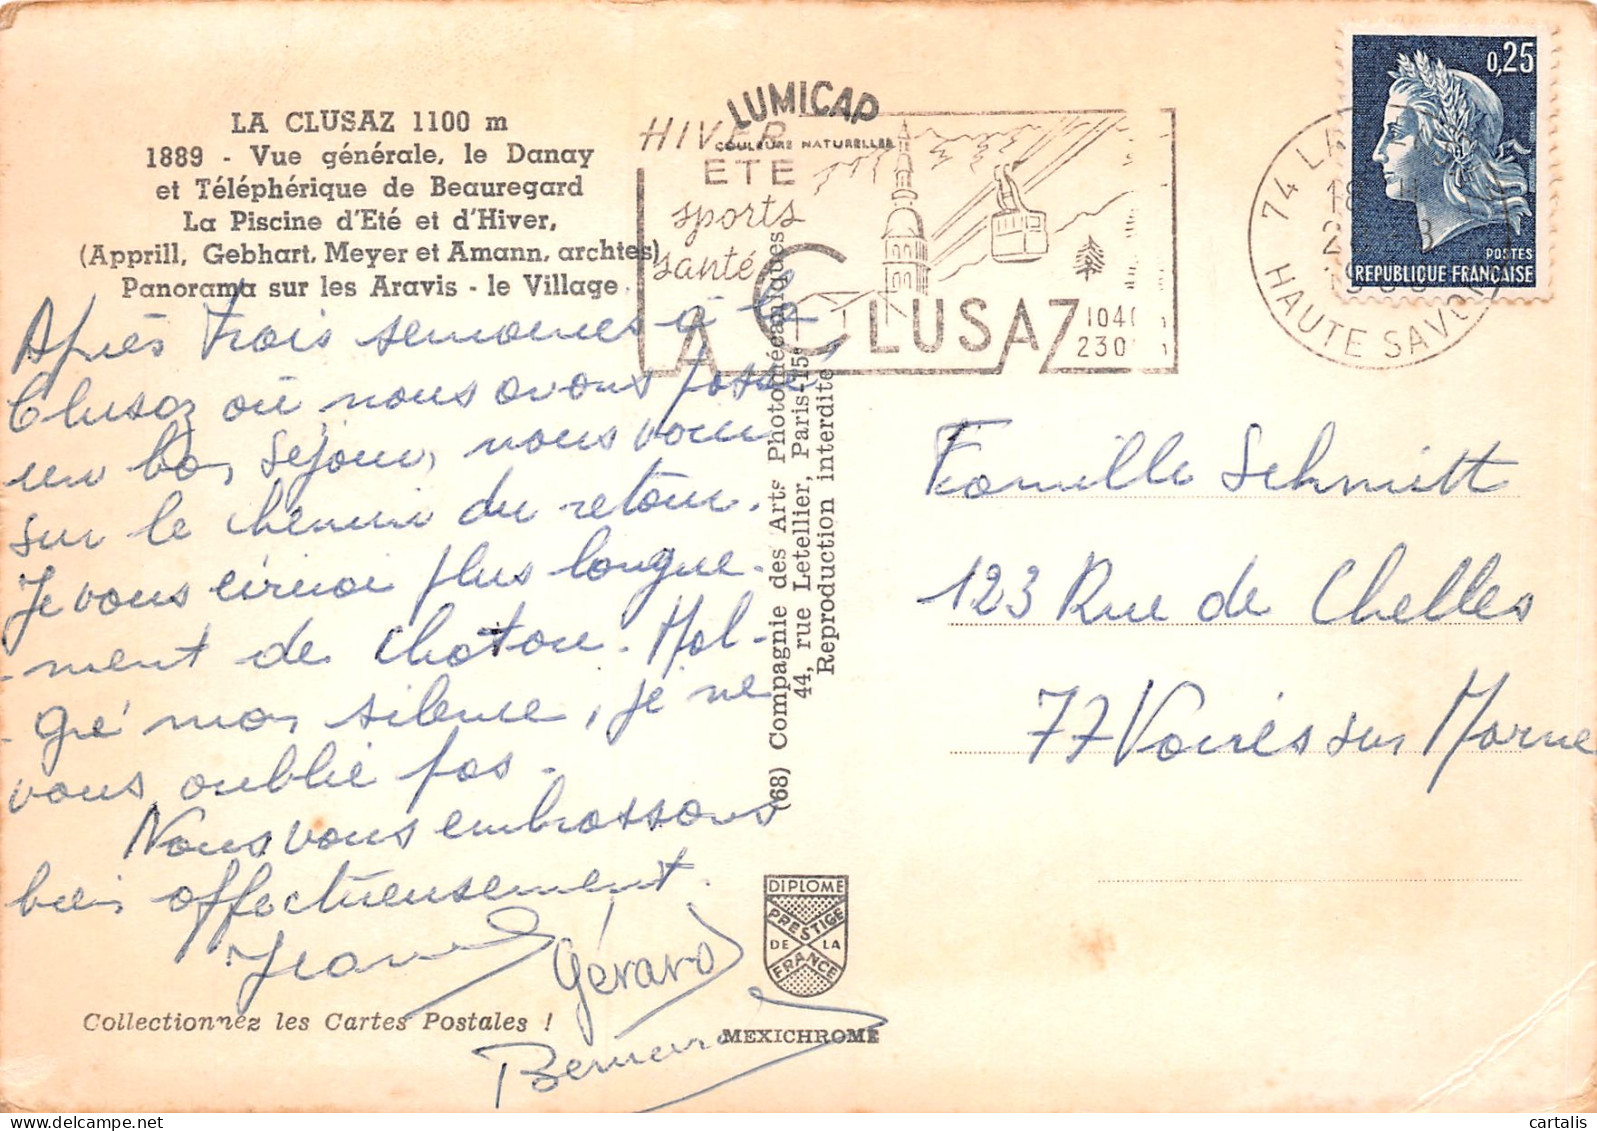 LA CLUSAZ 1100 m
1889 - Vue générale, le Danay
et Téléphérique de Beauregard
La Piscine d'Eté et d'Hiver,
(Apprill, Gebhart, Meyer et Amann, archtes)
Panorama sur les Aravis - le Village
Après trois semaines à la
Clusaz où nous avons passé
un bon séjour, nous voici
sur le chemin du retour.
Je vous écrirai plus longue-
-ment de Chatou. Mal-
-gré mon silence, je ne
vous oublie pas.
Nous vous embrassons
bien affectueusement.
Jeanne
Gérard
Bernard
Collectionnez les Cartes Postales !
LUMICAP
COULEURS NATURELLES
HIVER
ETE
sports
santé
LA CLUSAZ
1040
230
(68) Compagnie des Arts Photomécaniques
44, rue Letellier, Paris-15e
Reproduction interdite
DIPLOME
PRESTIGE
DE LA
FRANCE
MEXICHROME
0,25
POSTES
REPUBLIQUE FRANÇAISE
74 LA
HAUTE SAVOIE
Famille Schmitt
123 Rue de Chelles
77 Vaires sur Marne
cartalis